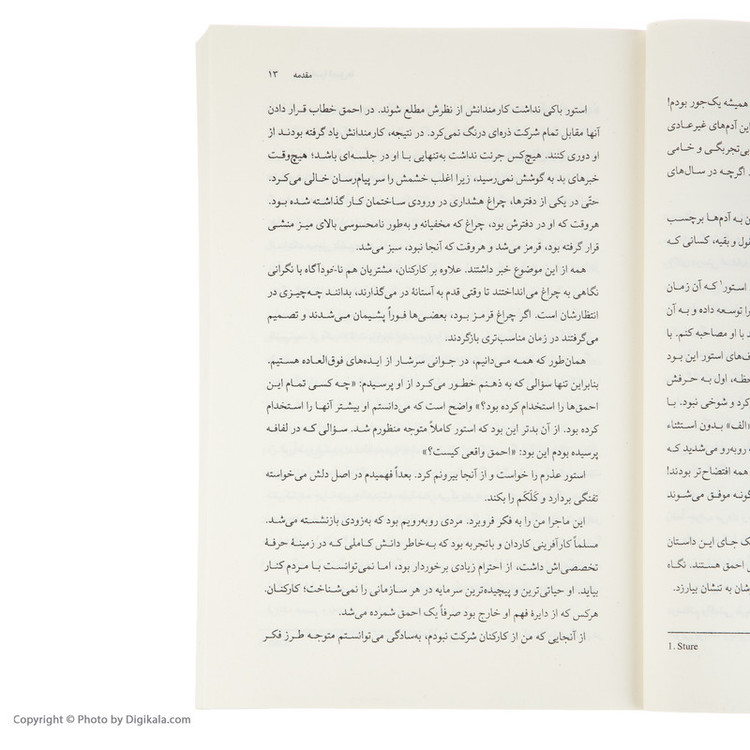 مقدمه ۱۳
استور باکی نداشت کارمندانش از نظرش مطلع شوند. در احمق خطاب قرار دادن
آنها مقابل تمام شرکت ذره‌ای درنگ نمی‌کرد. در نتیجه، کارمندانش یاد گرفته بودند از
او دوری کنند. هیچ‌کس جرئت نداشت به‌تنهایی با او در جلسه‌ای باشد؛ هیچ‌وقت
خبرهای بد به گوشش نمی‌رسید، زیرا اغلب خشمش را سر پیام‌رسان خالی می‌کرد.
حتّی در یکی از دفترها، چراغ هشداری در ورودی ساختمان کار گذاشته شده بود.
هروقت که او در دفترش بود، چراغ که مخفیانه و به‌طور نامحسوسی بالای میز منشی
قرار گرفته بود، قرمز می‌شد و هروقت که آنجا نبود، سبز می‌شد.
همه از این موضوع خبر داشتند. علاوه بر کارکنان، مشتریان هم ناخودآگاه با نگرانی
نگاهی به چراغ می‌انداختند تا وقتی قدم به آستانهٔ در می‌گذارند، بدانند چه‌چیزی در
انتظارشان است. اگر چراغ قرمز بود، بعضی‌ها فوراً پشیمان می‌شدند و تصمیم
می‌گرفتند در زمان مناسب‌تری بازگردند.
همان‌طور که همه می‌دانیم، در جوانی سرشار از ایده‌های فوق‌العاده هستیم.
بنابراین تنها سؤالی که به ذهنم خطور می‌کرد از او پرسیدم: «چه کسی تمام این
احمق‌ها را استخدام کرده بود؟» واضح است که می‌دانستم او بیشتر آنها را استخدام
کرده بود. از آن بدتر این بود که استور کاملاً متوجه منظورم شد. سؤالی که در لفافه
پرسیده بودم این بود: «احمق واقعی کیست؟»
استور عذرم را خواست و از آنجا بیرونم کرد. بعداً فهمیدم در اصل دلش می‌خواسته
تفنگی بردارد و کَلَکم را بکند.
این ماجرا من را به فکر فروبرد. مردی روبه‌رویم بود که به‌زودی بازنشسته می‌شد.
مسلماً کارآفرینی کاردان و باتجربه بود که به‌خاطر دانش کاملی که در زمینهٔ حرفهٔ
تخصصی‌اش داشت، از احترام زیادی برخوردار بود، اما نمی‌توانست با مردم کنار
بیاید. او حیاتی‌ترین و پیچیده‌ترین سرمایه در هر سازمانی را نمی‌شناخت؛ کارکنان.
هرکس که از دایرهٔ فهم او خارج بود صرفاً یک احمق شمرده می‌شد.
از آنجایی که من از کارکنان شرکت نبودم، به‌سادگی می‌توانستم متوجه طرز فکر
همیشه یک‌جور بودم!
این آدم‌های غیرعادی
بی‌تجربگی و خامی
اگرچه در سال‌های
ن به آدم‌ها برچسب
قول و بقیه، کسانی که
استور۱ که آن زمان
را توسعه داده و به آن
د با او مصاحبه کنم. با
ف‌های استور این بود
حظه، اول به حرفش
کرد و شوخی نبود. با
«الف» بدون استثناء
روبه‌رو می‌شدید که
همه افتضاح‌تر بودند!
گونه موفق می‌شوند
ک جای این داستان
ی احمق هستند. نگاه
شان به تنشان بیارزد.
1. Sture
Copyright © Photo by Digikala.com